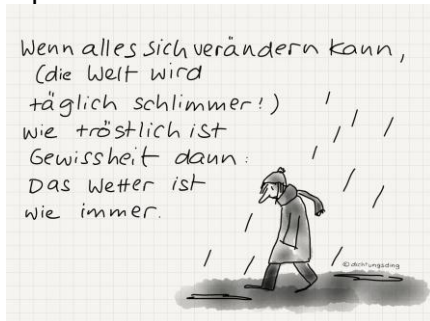 Wenn alles sich verändern kann,
(die Welt wird
täglich schlimmer!)
wie tröstlich ist
Gewissheit dann:
Das Wetter ist
wie immer.
©dichtungsding